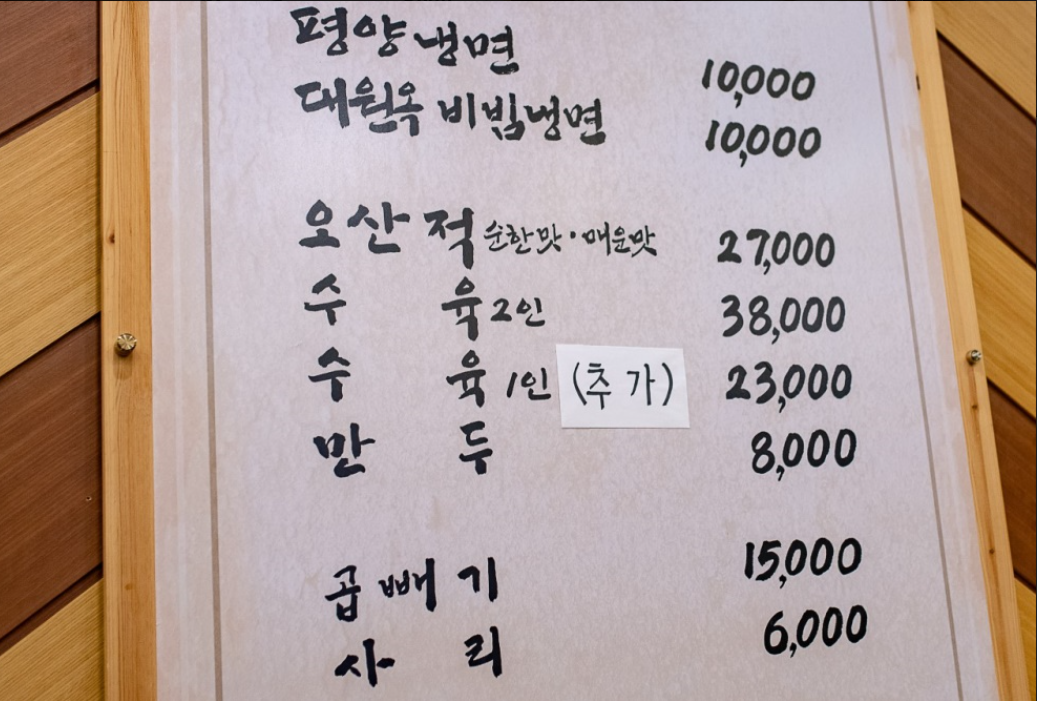 평양냉면 10,000
대원옥 비빔냉면 10,000
오산적 순한맛·매운맛 27,000
수육 2인 38,000
수육 1인 (추가) 23,000
만두 8,000
곱빼기 15,000
사리 6,000